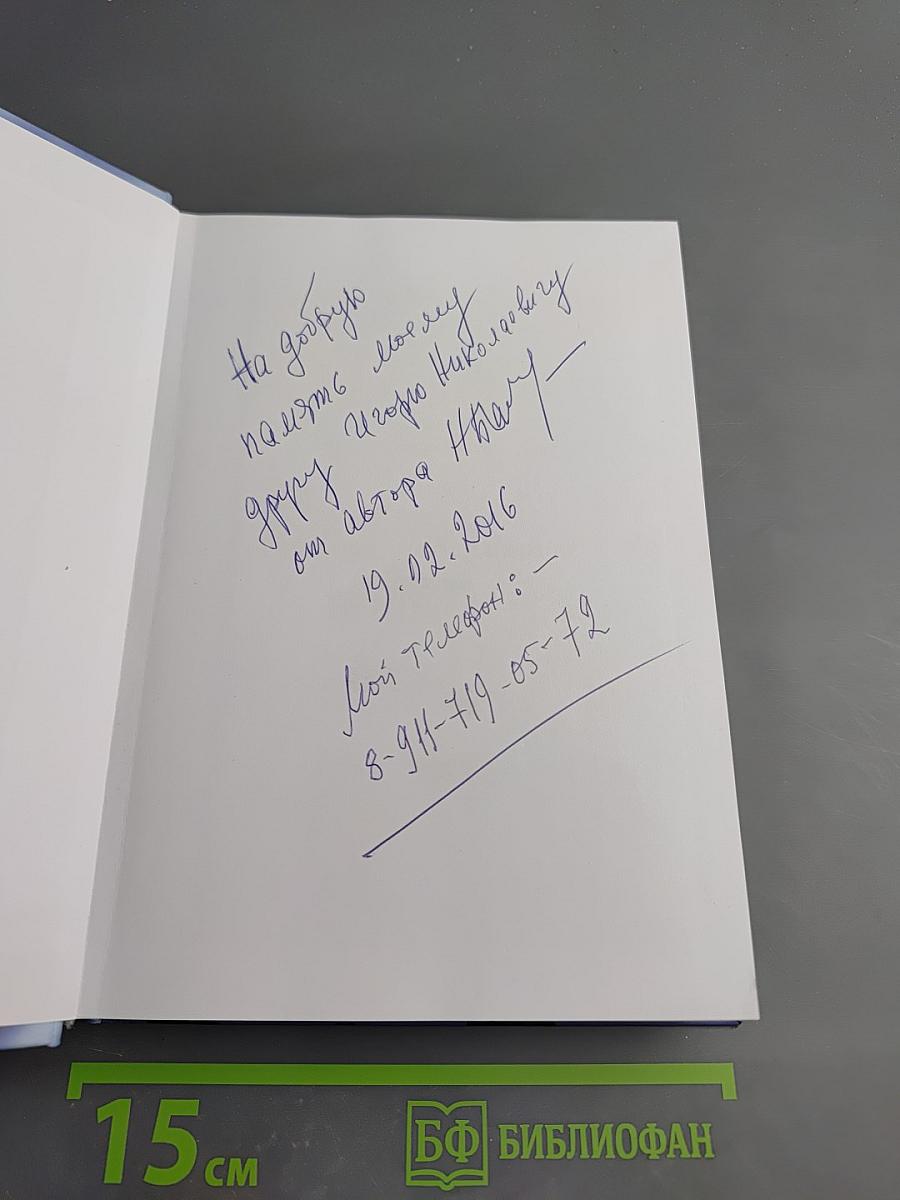 На добрую
память моему
другу Игорю Николаовичу
от автора
19.02.2016
Мой телефон: –
8-911-719-05-72
15 см
БФ БИБЛИОФАН